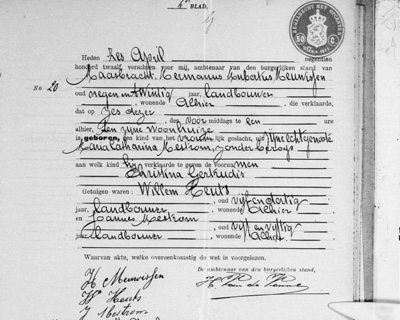 1e BLAD.
Heden zes April negentien
honderd twaalf, verscheen voor mij, ambtenaar van den burgerlijken stand van
Maasbracht, Hermanus Hubertus Meuwissen
No 20
oud negen en twintig jaar, landbouwer
wonende alhier, die verklaarde,
dat op zes dezer
des voor middags te een ure
alhier, ten zijne woonhuize
is geboren, een kind van het vrouwelijk geslacht, uit zijne echtgenoote
Maria Catharina Mestrom, zonder beroep
aan welk kind hij verklaarde te geven de voornamen
Christina Gertrudis
Getuigen waren: Willem Heuts
oud vijf en dertig
jaar, landbouwer, wonende alhier
en Joannes Mestrom
oud vijf en vijftig
jaar, landbouwer, alhier
Waarvan akte, welke overeenkomstig de wet is voorgelezen.
H Meuwissen
De ambtenaar van den burgerlijken stand,
W Heuts
J Mestrom